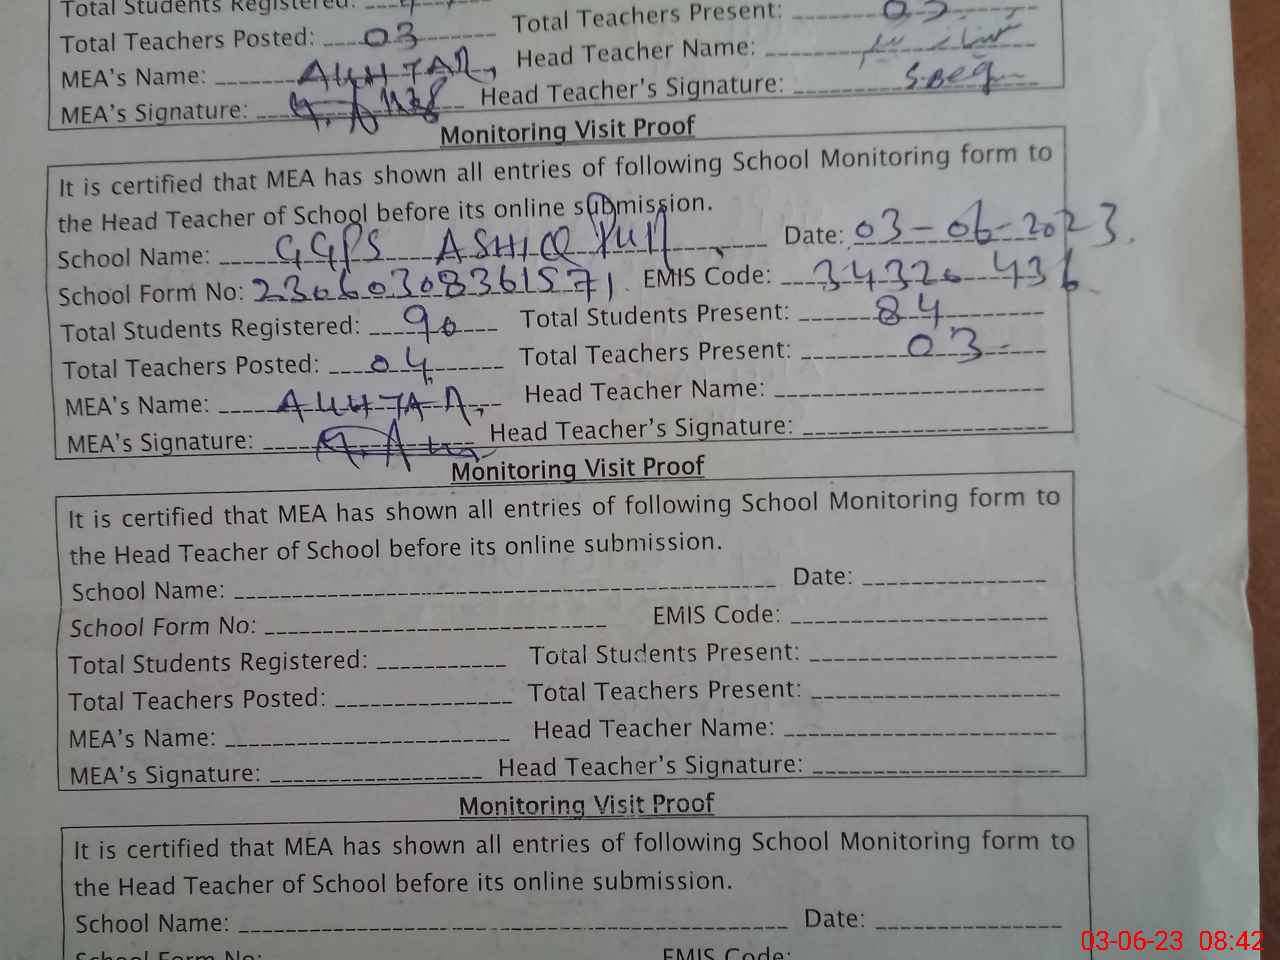 Total Students Registered:
Total Teachers Posted: 03 Total Teachers Present: 03
MEA's Name: AKHTAR, Head Teacher Name:
MEA's Signature: Head Teacher's Signature: S.Beg
Monitoring Visit Proof
It is certified that MEA has shown all entries of following School Monitoring form to
the Head Teacher of School before its online submission.
School Name: GGPS ASHIQ PUR Date: 03-06-2023.
School Form No: 23060308361571 EMIS Code: 34320436
Total Students Registered: 90 Total Students Present: 84
Total Teachers Posted: 04 Total Teachers Present: 03
MEA's Name: AKHTAR, Head Teacher Name:
MEA's Signature: Head Teacher's Signature:
Monitoring Visit Proof
It is certified that MEA has shown all entries of following School Monitoring form to
the Head Teacher of School before its online submission.
School Name: Date:
School Form No: EMIS Code:
Total Students Registered: Total Students Present:
Total Teachers Posted: Total Teachers Present:
MEA's Name: Head Teacher Name:
MEA's Signature: Head Teacher's Signature:
Monitoring Visit Proof
It is certified that MEA has shown all entries of following School Monitoring form to
the Head Teacher of School before its online submission.
School Name: Date:
School Form No: EMIS Code:
03-06-23 08:42